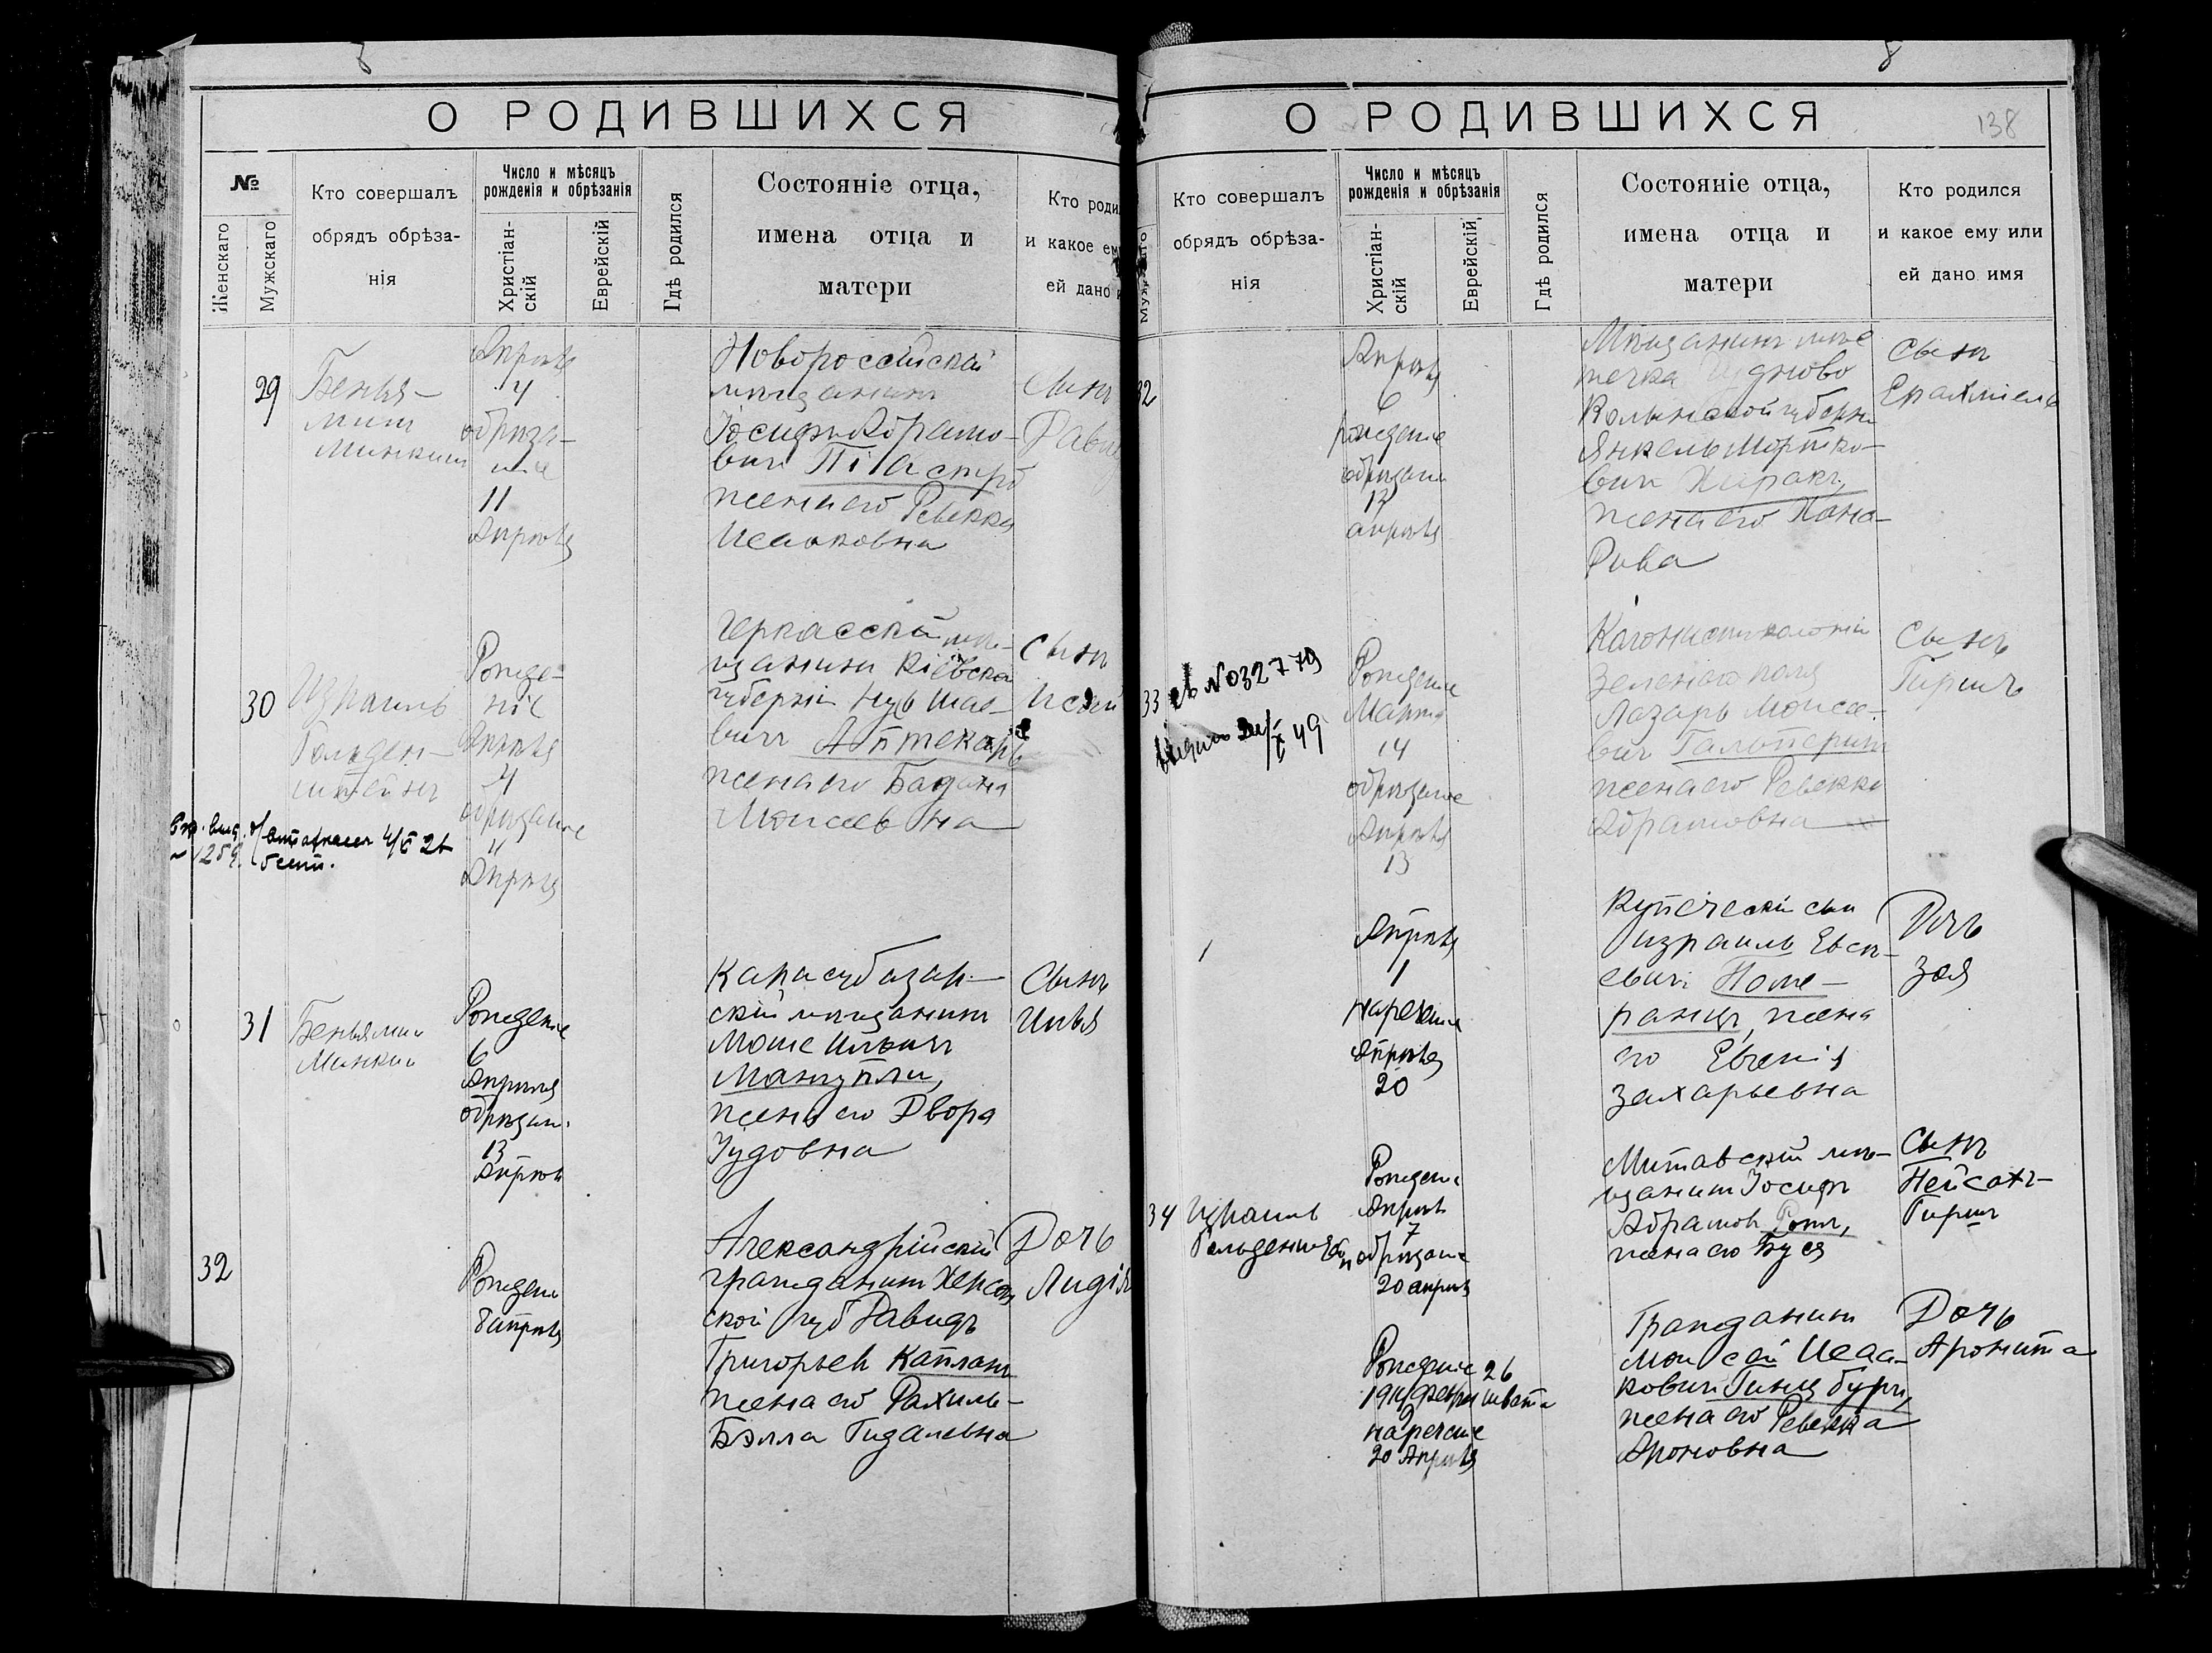 О РОДИВШИХСЯ
№
Женскаго
Мужскаго
Кто совершалъ
обрядъ обрѣза-
нія
Число и мѣсяцъ
рожденія и обрѣзанія
Христіан-
скій
Еврейскій
Гдѣ родился
Состояніе отца,
имена отца и
матери
Кто роди
и какое ем
ей дано
29
Бенья-
мин
Минкин
Апрѣля
4
обрѣза-
ніе
11
Апрѣля
Новороссійскій
мѣщанинъ
Іосифъ Абрамо-
вич Піастро
жена его Ревекка
Исаковна
Сынъ
Давид
30
Израиль
Гольден-
штейнъ
Рожде-
ніе
Апрѣля
4
обрѣзаніе
11
Апрѣля
Черкасскій мѣ-
щанинъ Кіевской
губерніи
вич Аптекарь
жена его
Моисеевна
Сынъ
Исай
31
Беньямин
Минкин
Рожденіе
6
Апрѣля
обрѣзан.
13
Апрѣля
Карасубазар-
скій мѣщанинъ
Моше Ильичъ
Мангупли,
жена его Двора
Іудовна
Сынъ
Илья
32
Рожден
8 апрѣля
Александрійскій
гражданинъ Херсон
ской губ Давидъ
Григорьев Капланъ
жена его Рахиль-
Бэлла Гидалевна
Дочь
Лидія
О РОДИВШИХСЯ
138
Кто совершалъ
обрядъ обрѣза-
нія
Число и мѣсяцъ
рожденія и обрѣзанія
Христіан-
скій
Еврейскій
Гдѣ родился
Состояніе отца,
имена отца и
матери
Кто родился
и какое ему или
ей дано имя
32
Апрѣля
6
рожденіе
обрѣзаніе
13
апрѣля
Мѣщанинъ мѣс
течка Чудново
Волынской губерн
Янкель Мортко-
вич
жена его Хана-
Рива
Сынъ
Ерахміель
33
св №032779
выдано 49
Рожденіе
Марта
14
обрѣзаніе
Апрѣля
13
Колонистъ колоніи
Зеленаго поля
Лазарь Моисе-
вич Гальперин
жена его Ревекка
Абрамовна
Сынъ
Гиршъ
Апрѣля
1
нареченіе
Апрѣля
20
Купеческій сын
Израиль Евсе-
евич Поме-
ранцъ, жена
его Евгенія
Захарьевна
Дочь
Зоя
34
Израиль
Гольденштейн
Рожденіе
Апрѣля
7
обрѣзаніе
20 апрѣля
Митавскій мѣ-
щанинъ Іосифъ
Абрамов
жена его Буся
Сынъ
Нейсахъ-
Гирш
Рожденіе 26
1919 февр шват
нареченіе
20 Апрѣля
Гражданинъ
Моисей Исаа-
кович Гинцбургъ,
жена его Ревекка
Ароновна
Дочь
Аронита